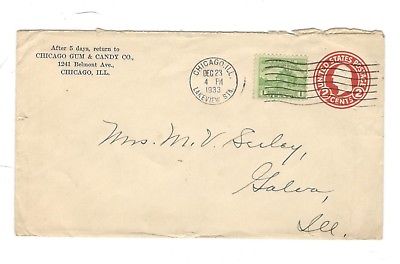 After 5 days, return to
CHICAGO GUM & CANDY CO.,
1241 Belmont Ave.,
CHICAGO, ILL.
CHICAGO, ILL.
DEC 23
4 PM
1933
LAKEVIEW STA.
UNITED STATES POSTAGE
2 CENTS 2
Mrs. M. V. Seeley,
Galva,
Ill.